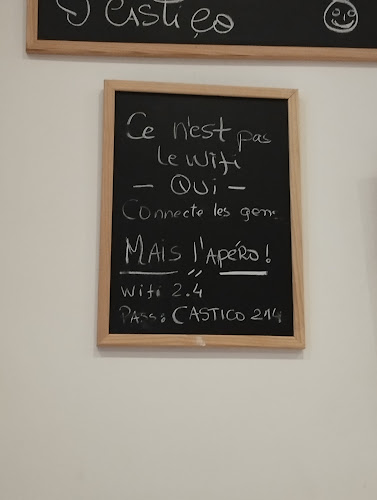 CASTIÇO
Ce n'est pas
Le Wifi
- QUI -
Connecte les gens
MAIS l'APÉRO!
Wifi 2.4
PASS: CASTICO 214